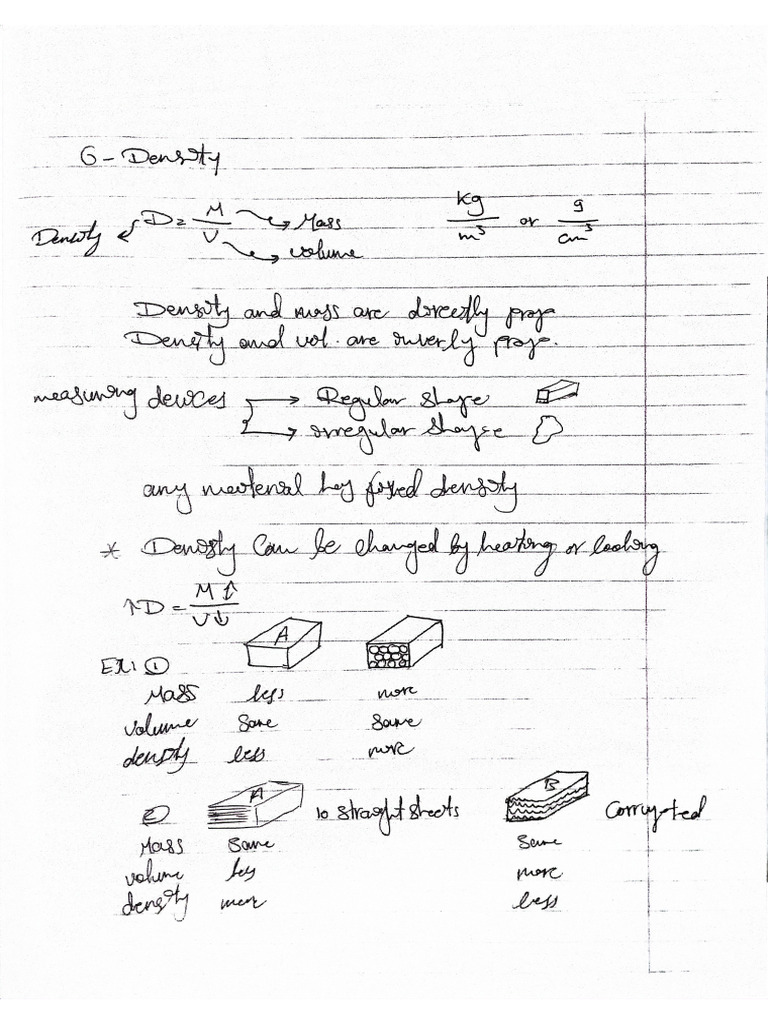 6 - Density
Density D = M/V Mass volume kg/m³ or g/cm³
Density and mass are directly prop
Density and vol. are inverly prop.
measuring devices Regular shape
irregular shape
any material has fixed density
* Density can be changed by heating or cooling
↑D = M↑/V↓
A
Ex: ①
Mass less more
volume Same Same
density less more
② A 10 straight sheets B Corrugated
Mass Same Same
volume less more
density more less